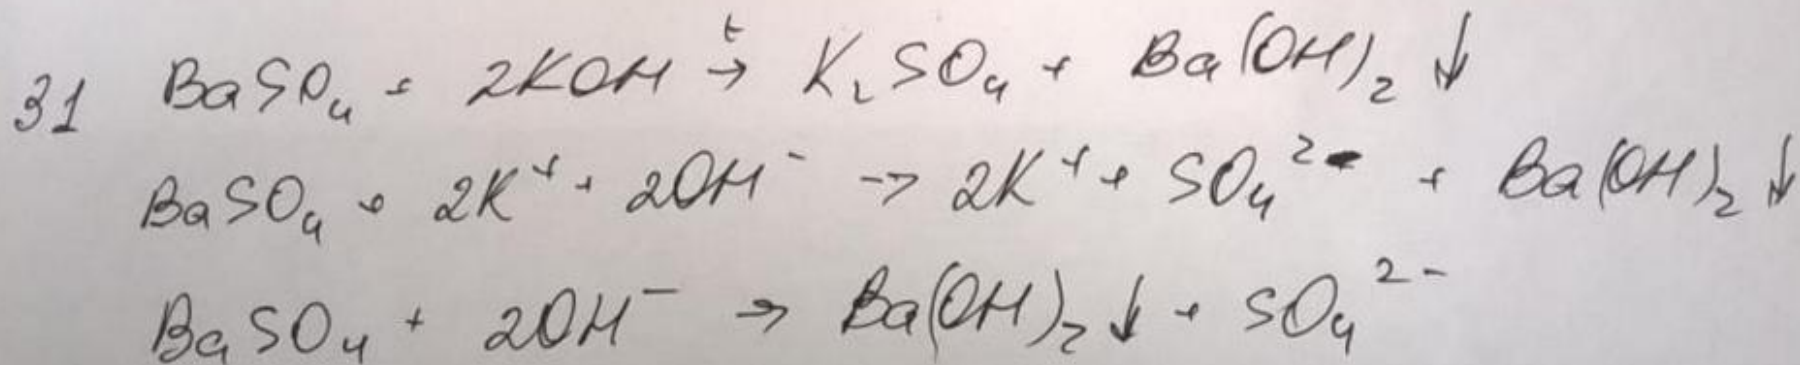 31 BaSO₄ + 2KOH →ᵗ K₂SO₄ + Ba(OH)₂ ↓
BaSO₄ + 2K⁺ + 2OH⁻ → 2K⁺ + SO₄²⁻ + Ba(OH)₂ ↓
BaSO₄ + 2OH⁻ → Ba(OH)₂ ↓ + SO₄²⁻